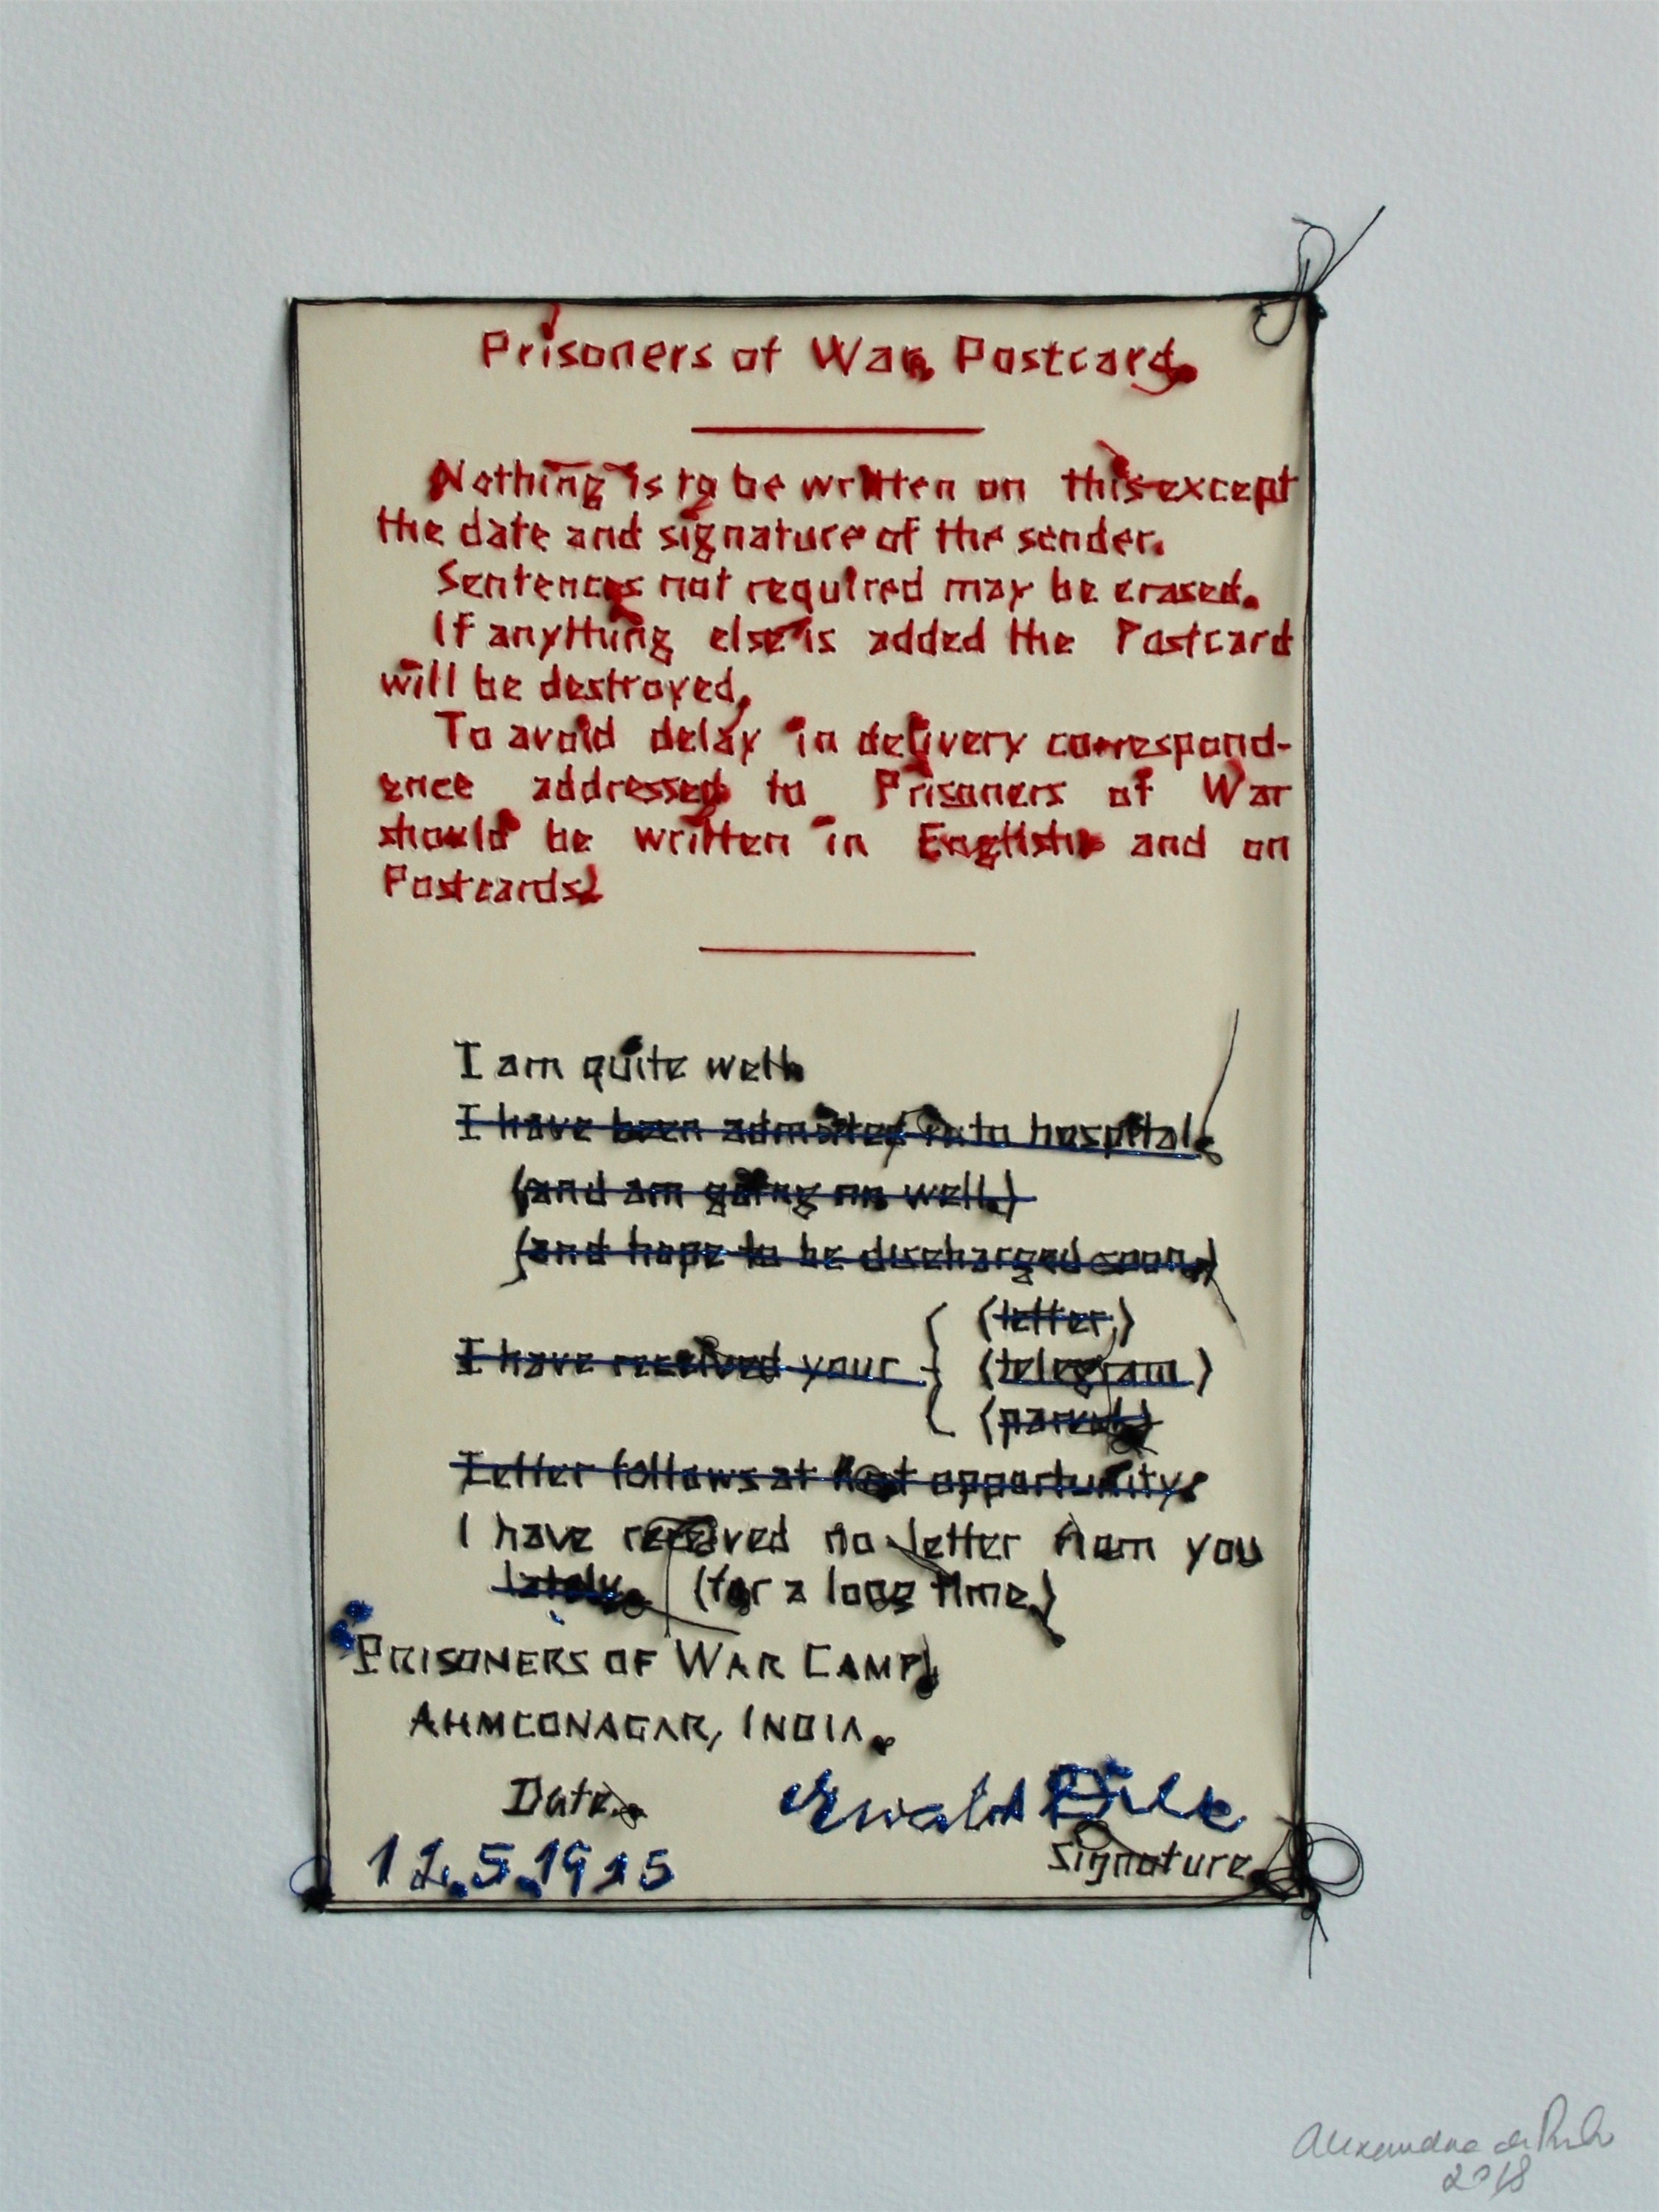 Prisoners of War Postcard.
Nothing is to be written on this except
the date and signature of the sender.
Sentences not required may be erased.
If anything else is added the Postcard
will be destroyed.
To avoid delay in delivery correspond-
ence addressed to Prisoners of War
should be written in English and on
Postcards.
I am quite well.
I have been admitted into hospital.
(and am going on well.)
(and hope to be discharged soon.)
(letter.)
I have received your { (telegram.)
(parcel.)
Letter follows at first opportunity.
I have received no letter from you
lately. (for a long time.)
PRISONERS OF WAR CAMP,
AHMEDNAGAR, INDIA.
Date. Ewald
12.5.1915 Signature.
2018